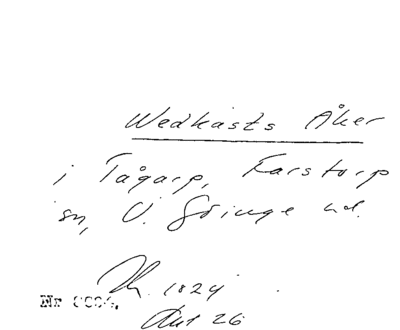 Wedkasts Åker
i Tågarp, Farstorp
sn, V. Göinge hd.
1824
Akt 26